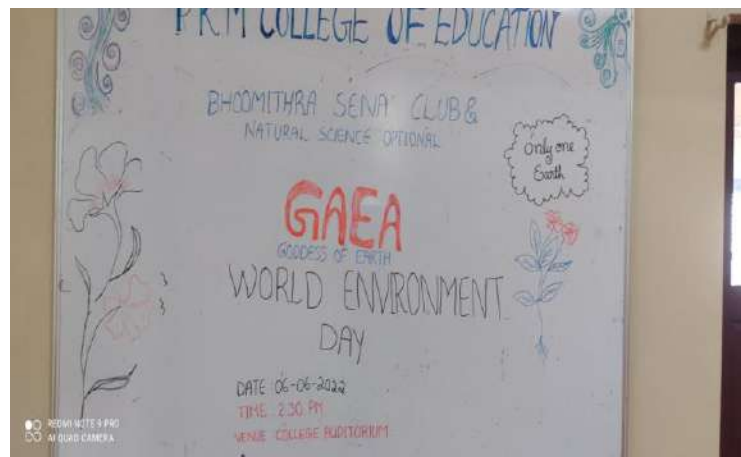 PKM COLLEGE OF EDUCATION
BHOOMITHRA SENA CLUB &
NATURAL SCIENCE OPTIONAL
Only one
Earth
GAEA
GODDESS OF EARTH
WORLD ENVIRONMENT
DAY
DATE 06-06-2022
TIME 2:30 PM
VENUE COLLEGE AUDITORIUM
REDMI NOTE 9 PRO
AI QUAD CAMERA